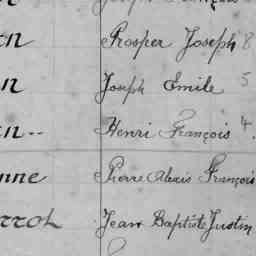 Prosper Joseph 8
Joseph Emile 5
Henri François 4
nne Pierre Alexis François
rrot Jean Baptiste Justin